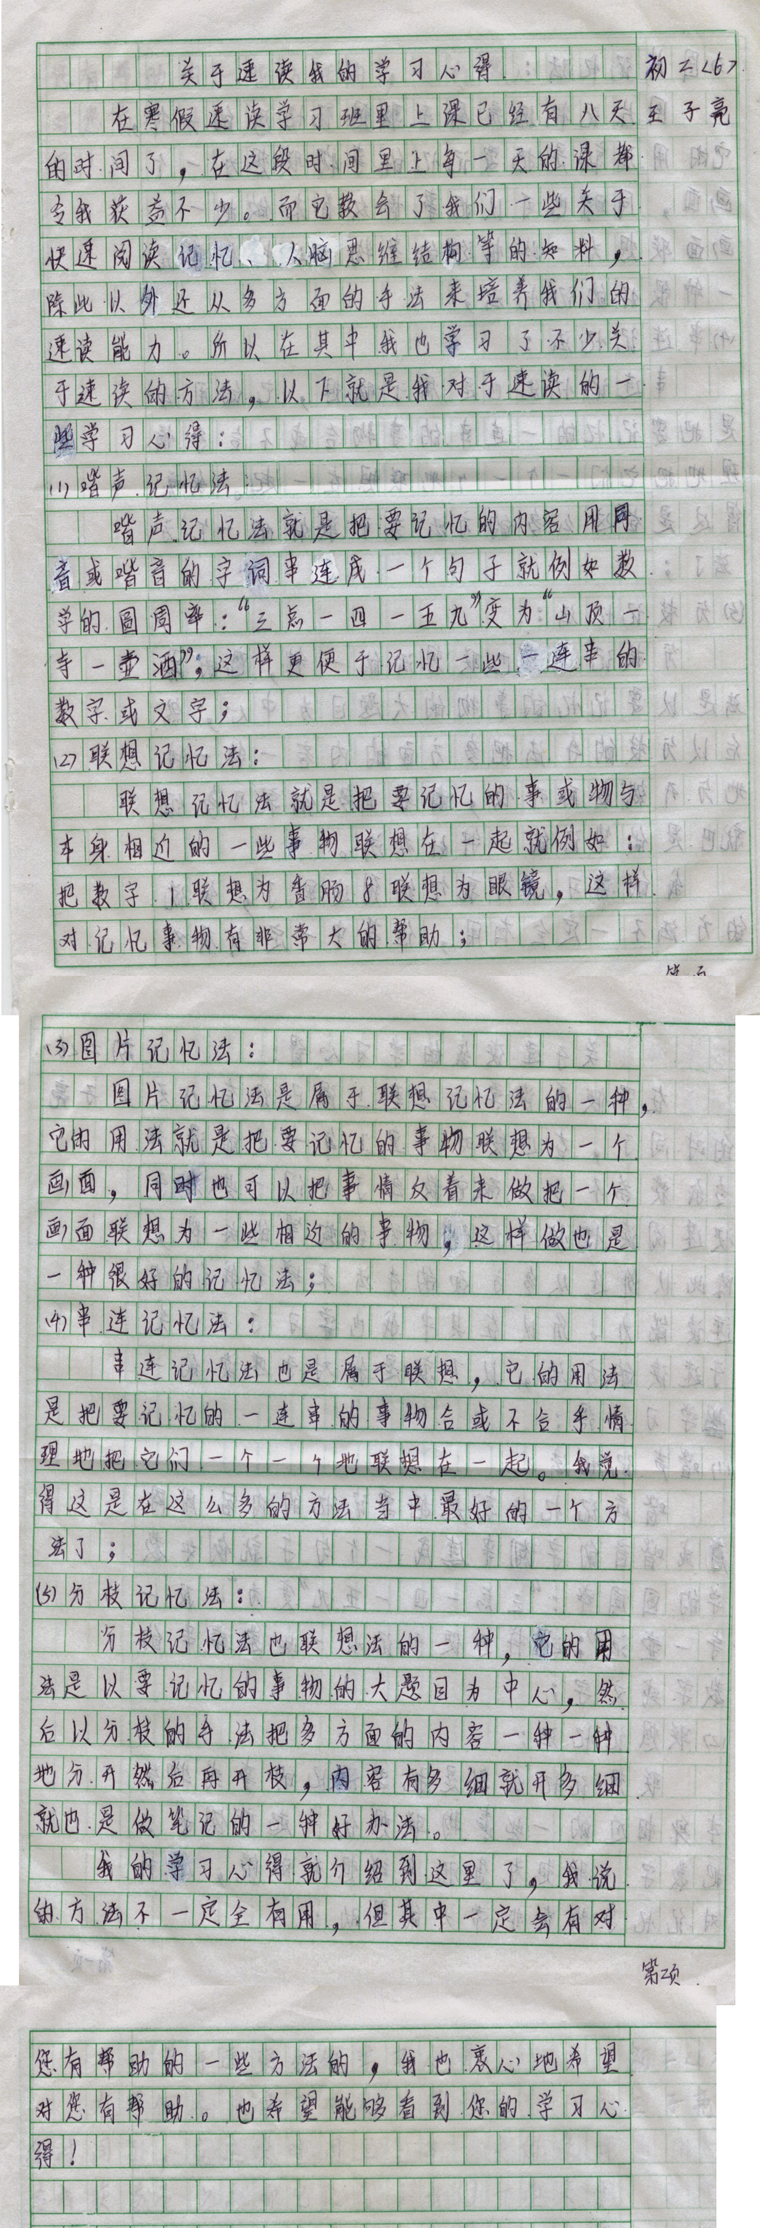 关于速读我的学习心得. 初二<6>
在寒假速读学习班里上课已经有八天 王子亮
的时间了，在这段时间里上每一天的课都
令我获益不少。而它教会了我们一些关于
快速阅读记忆、人脑思维结构等的知料，
除此以外还从多方面的手法来培养我们的
速读能力。所以在其中我也学习了不少关
于速读的方法，以下就是我对于速读的一
些学习心得：
(1)谐声记忆法：
谐声记忆法就是把要记忆的内容用同
音或谐音的字词串连成一个句子就例如数
学的圆周率：“三点一四一五九”变为“山顶一
寺一壶酒”；这样更便于记忆一些一连串的
数字或文字；
(2)联想记忆法：
联想记忆法就是把要记忆的事或物与
本身相近的一些事物联想在一起就例如：
把数字1联想为香肠8联想为眼镜，这样
对记忆事物有非常大的帮助；
(3)图片记忆法：
图片记忆法是属于联想记忆法的一种，
它的用法就是把要记忆的事物联想为一个
画面，同时也可以把事情反着来做把一个
画面联想为一些相近的事物，这样做也是
一种很好的记忆法；
(4)串连记忆法：
串连记忆法也是属于联想，它的用法
是把要记忆的一连串的事物合或不合乎情
理地把它们一个一个地联想在一起。我觉
得这是在这么多的方法当中最好的一个方
法了；
(5)分枝记忆法：
分枝记忆法也联想法的一种，它的用
法是以要记忆的事物的大题目为中心，然
后以分枝的手法把多方面的内容一种一种
地分开然后再开枝，内容有多细就开多细
就也是做笔记的一种好办法。
我的学习心得就介绍到这里了，我说
的方法不一定全有用，但其中一定会有对
第二页
您有帮助的一些方法的，我也衷心地希望
对您有帮助。也希望能够看到您的学习心
得！